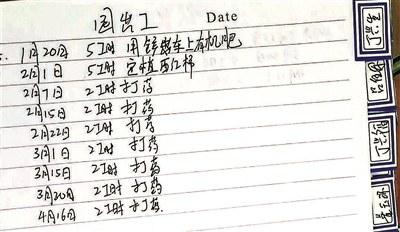 周出工 Date
1月20日 5工时 用锌拱车上有机吧
2月1日 5工时 定植西红柿
2月7日 2工时 打药
2月15日 2工时 打药
2月22日 2工时 打药
3月1日 2工时 打药
3月15日 2工时 打药
3月20日 2工时 打药
4月16日 2工时 打药